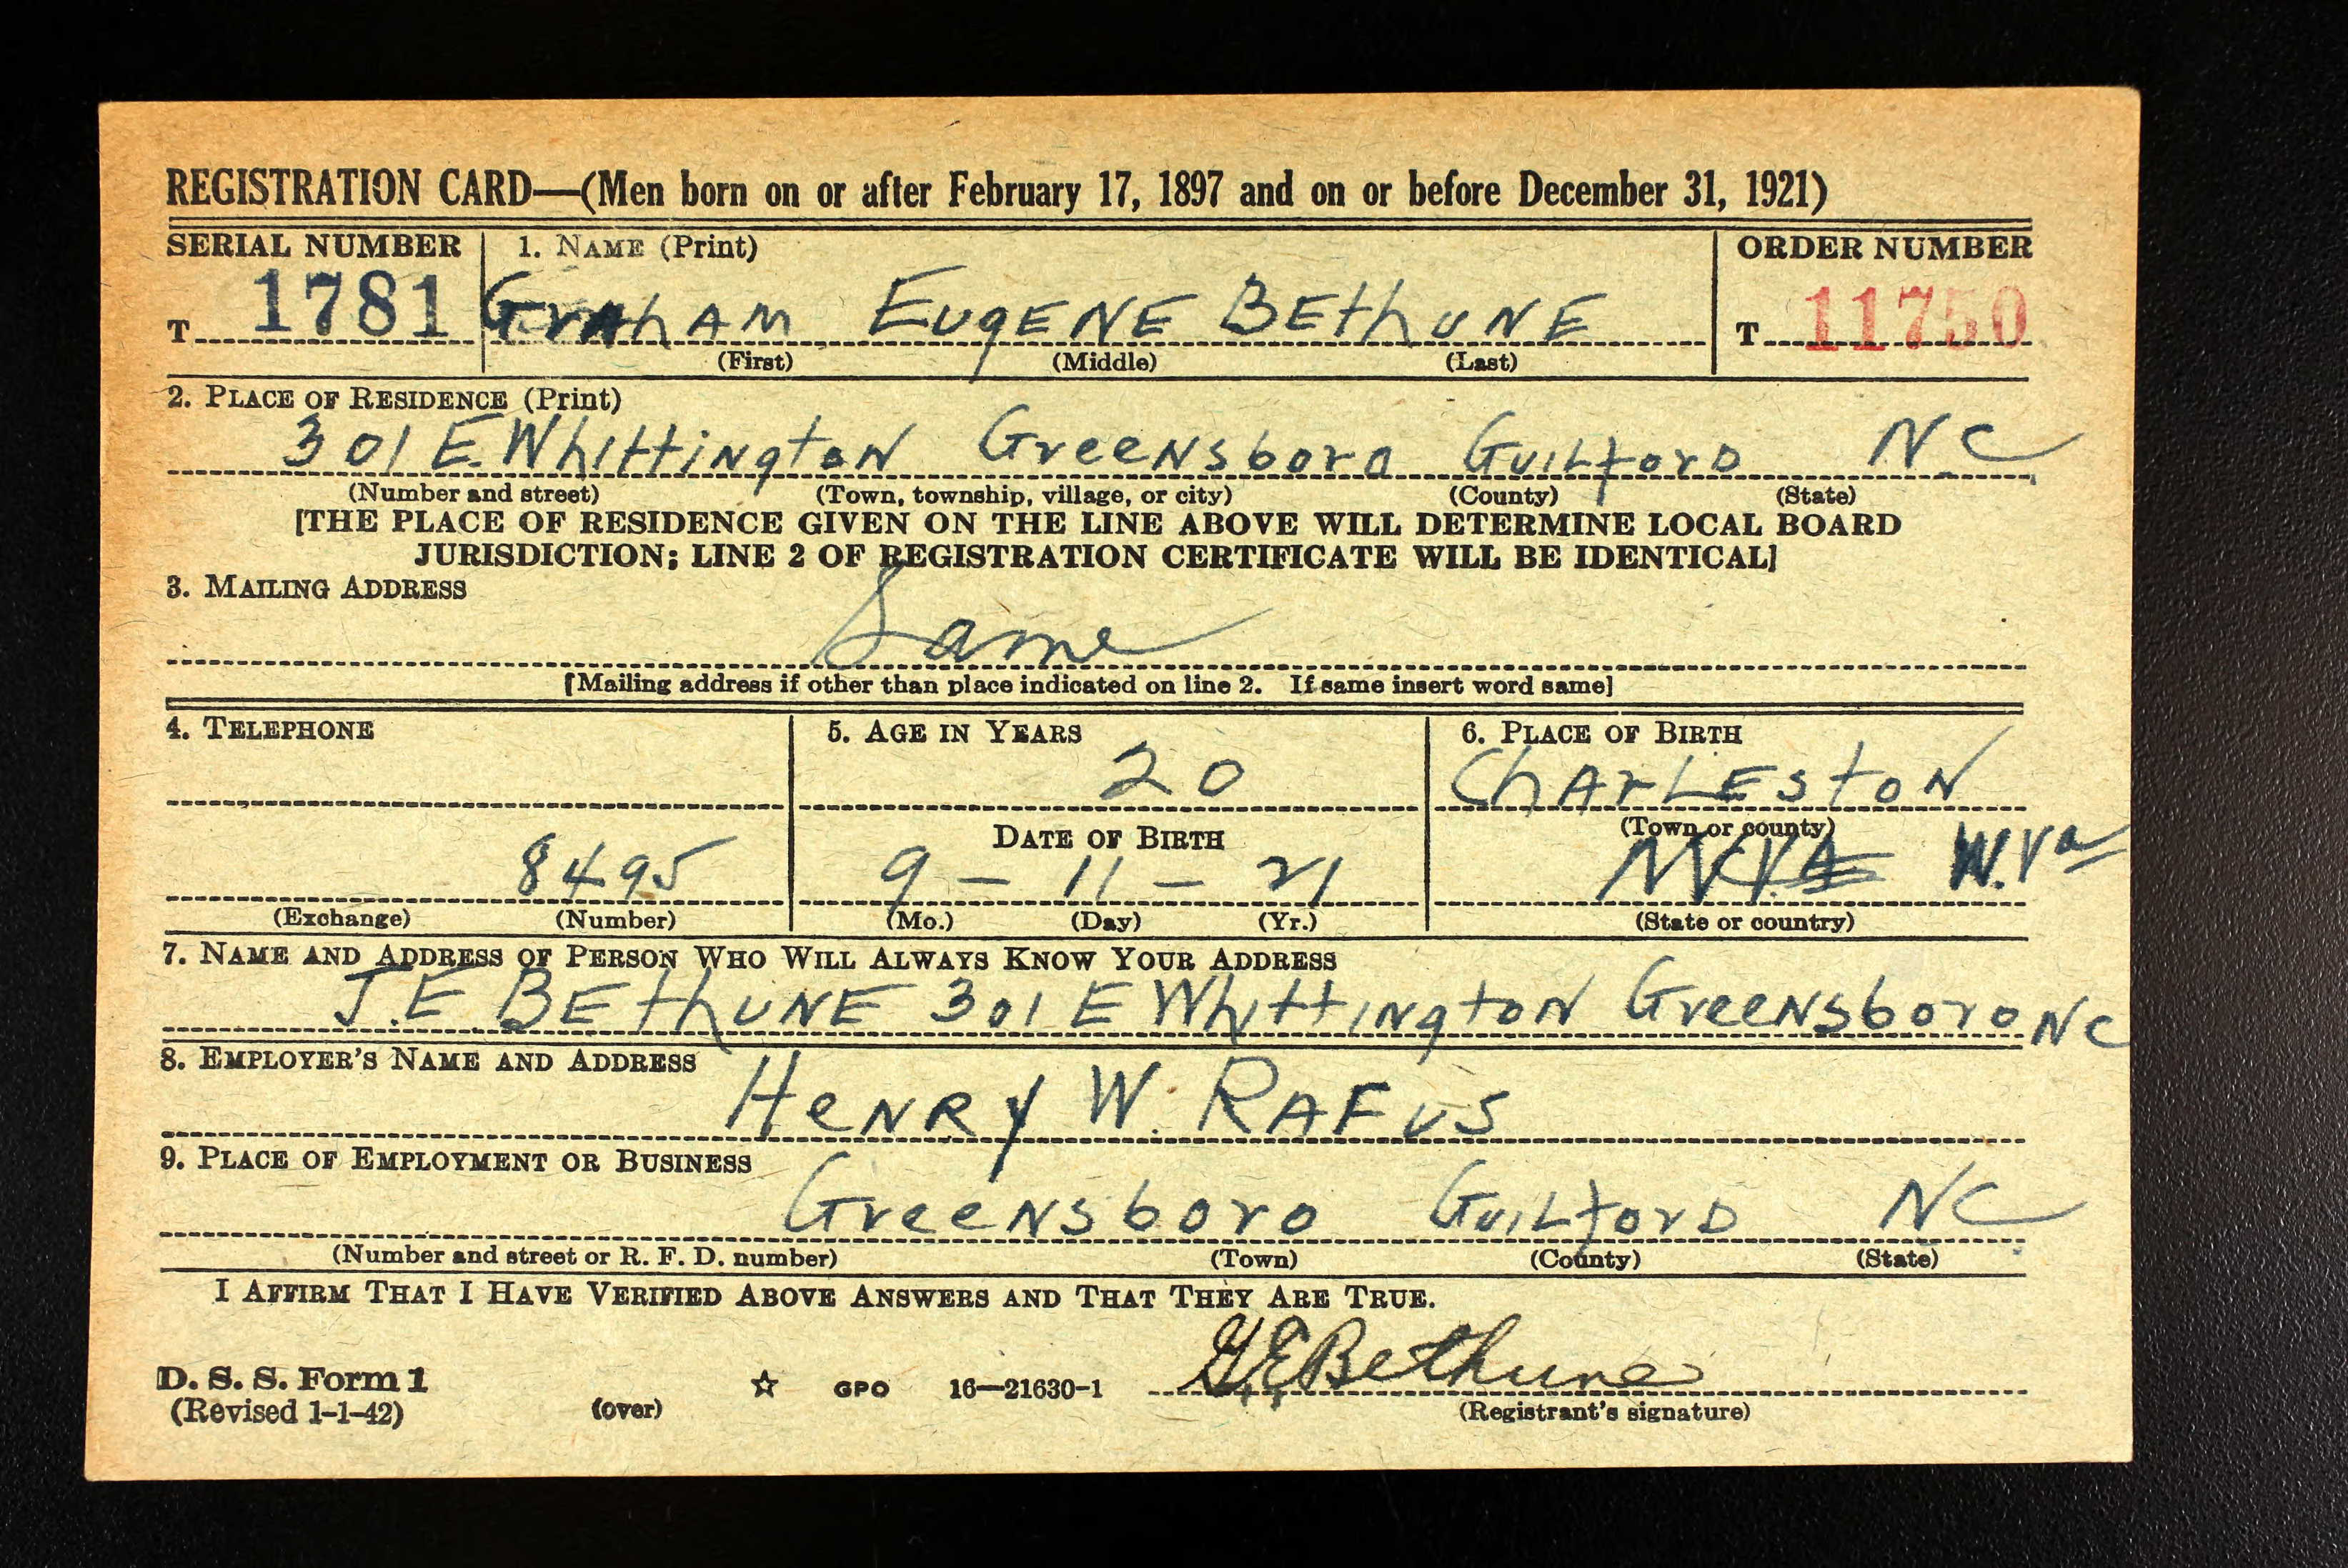 REGISTRATION CARD—(Men born on or after February 17, 1897 and on or before December 31, 1921)
SERIAL NUMBER 1. NAME (Print) ORDER NUMBER
T 1781 GrAhAM EugENE BEthUNE T 11750
(First) (Middle) (Last)
2. PLACE OF RESIDENCE (Print)
301 E. WhittiNgtoN GreeNsboro GuiLford NC
(Number and street) (Town, township, village, or city) (County) (State)
[THE PLACE OF RESIDENCE GIVEN ON THE LINE ABOVE WILL DETERMINE LOCAL BOARD
JURISDICTION; LINE 2 OF REGISTRATION CERTIFICATE WILL BE IDENTICAL]
3. MAILING ADDRESS
Same
[Mailing address if other than place indicated on line 2. If same insert word same]
4. TELEPHONE 5. AGE IN YEARS 6. PLACE OF BIRTH
20 ChArLEstoN
DATE OF BIRTH (Town or county)
8495 9 – 11 – 21 W.Va
(Exchange) (Number) (Mo.) (Day) (Yr.) (State or country)
7. NAME AND ADDRESS OF PERSON WHO WILL ALWAYS KNOW YOUR ADDRESS
J.E. BEthUNE 301 E WhittiNgtoN GreeNsboro NC
8. EMPLOYER'S NAME AND ADDRESS
HeNRy W. RAFUS
9. PLACE OF EMPLOYMENT OR BUSINESS
GreeNsboro GuiLford NC
(Number and street or R. F. D. number) (Town) (County) (State)
I AFFIRM THAT I HAVE VERIFIED ABOVE ANSWERS AND THAT THEY ARE TRUE.
G E Bethune
D. S. S. Form 1 ☆ GPO 16—21630-1
(Revised 1-1-42) (over) (Registrant's signature)